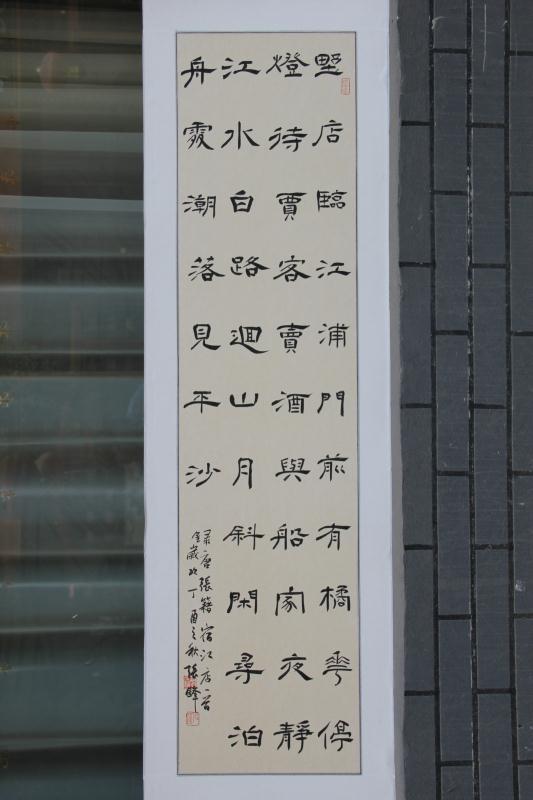 墅店臨江浦門前有橘華停
燈待賈客賣酒與船家夜靜
江水白路迴山月斜閑尋泊
舟處潮落見平沙
录唐張籍宿江店一首
歲次丁酉之秋張鋒